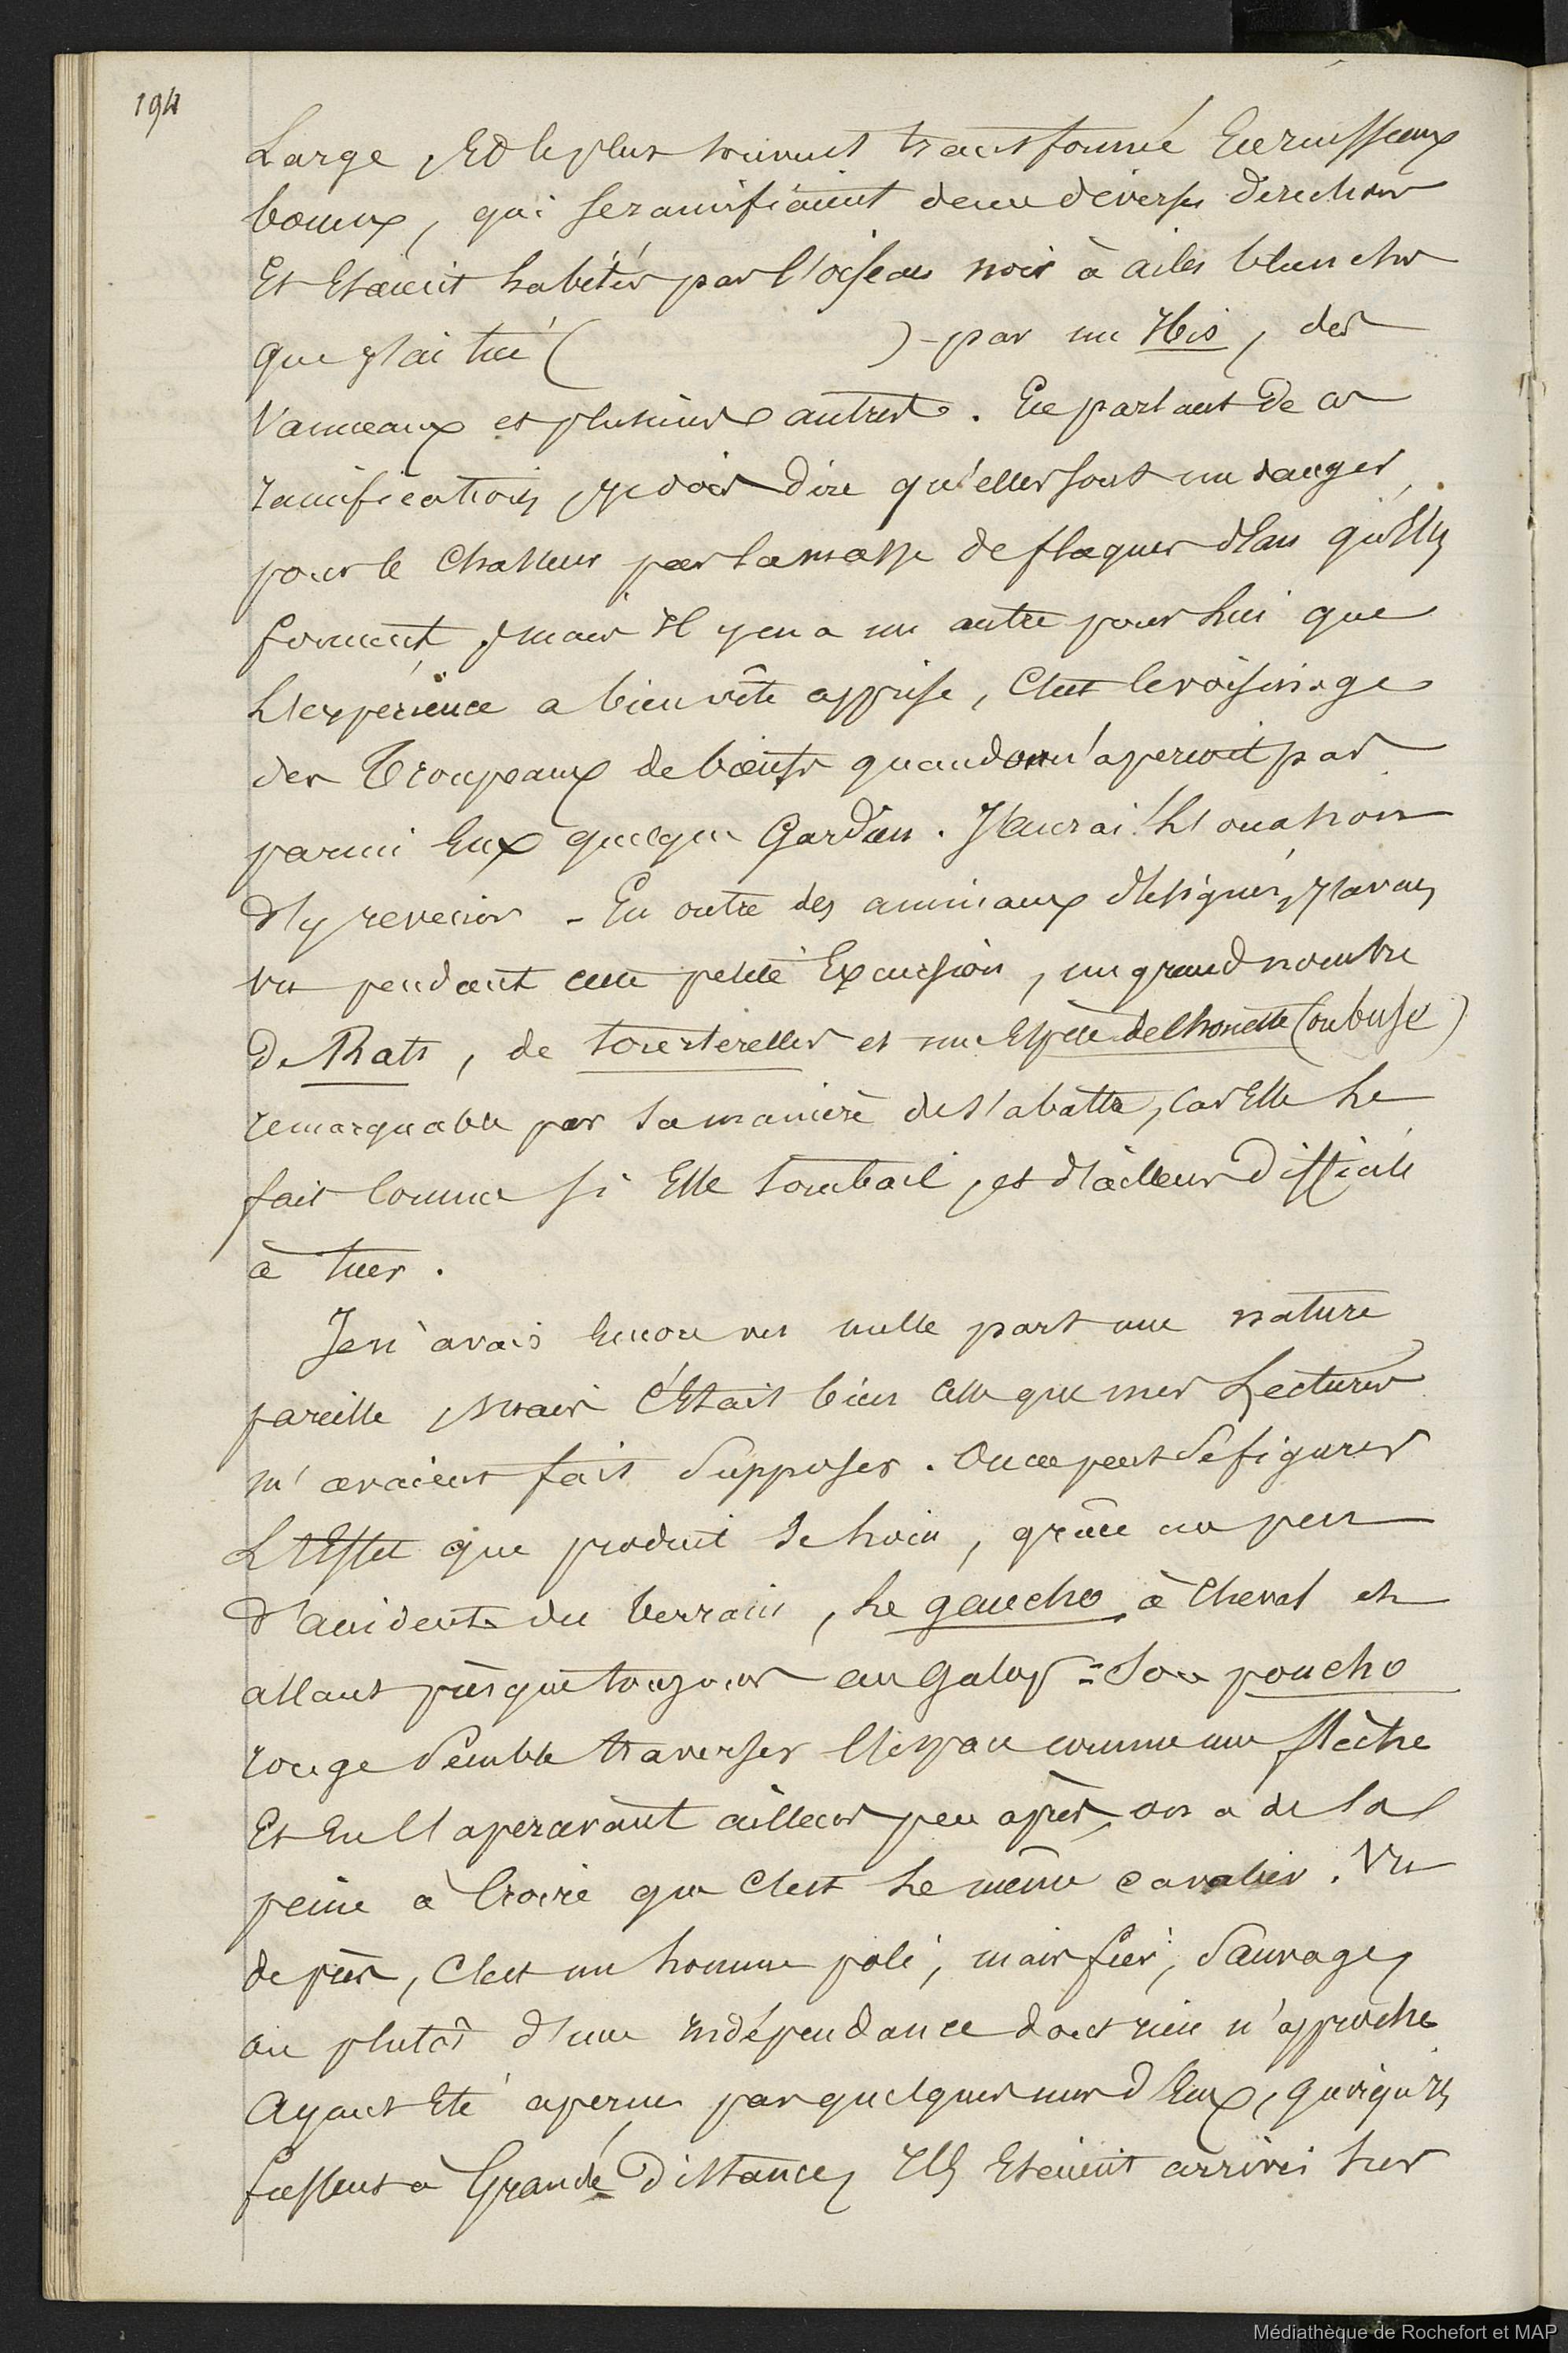 194
Large, Et le plus souvent transformé En ruisseaux
boueux, qui se ramifiaient dans diverses directions
Et Etaient habités par l'oiseau noir à ailes blanches
que j'ai tué ( ) - par un Ibis, des
Vanneaux et plusieurs autres. En parlant de ces
ramifications, je dois dire qu'elles sont un danger,
pour le Chasseur par la masse de flaques d'Eau qu'Elles
forment, mais Il y en a un autre pour lui que
L'expérience a bien vite apprise, C'est le voisinage
des Troupeaux de bœufs quand on n'aperçoit pas
parmi Eux quelque Gardien. J'aurai l'occasion
d'y revenir - En outre des animaux désignés, j'avais
vu pendant cette petite Excursion, un grand nombre
de Rats, de tourterelles et une Espèce de Chouette (ou buse)
remarquable par sa manière de s'abattre, Car Elle le
fait Comme si Elle tombait, et d'ailleurs Difficile
à tuer.
Je n'avais Encore vu nulle part une nature
pareille, mais C'Etait bien Celle que mes Lectures
m'avaient fait Supposer. On ne peut Se figurer
L'Effet que produit de loin, grâce au peu
D'accidents du terrain, le gaucho, à Cheval et
allant presque toujours au Galop = Son poncho
rouge Semble traverser l'Espace comme une flèche
Et En l'apercevant ailleurs peu après, on a de la
peine à Croire que C'est le même Cavalier. Vu
de près, C'est un homme poli, mais fier, Sauvage,
ou plutôt d'une Indépendance dont rien n'approche
Ayant Eté aperçus par quelques uns d'Eux, quoiqu'Ils
fussent à Grande Distance, Ils Etaient arrivés sur
Médiathèque de Rochefort et MAP